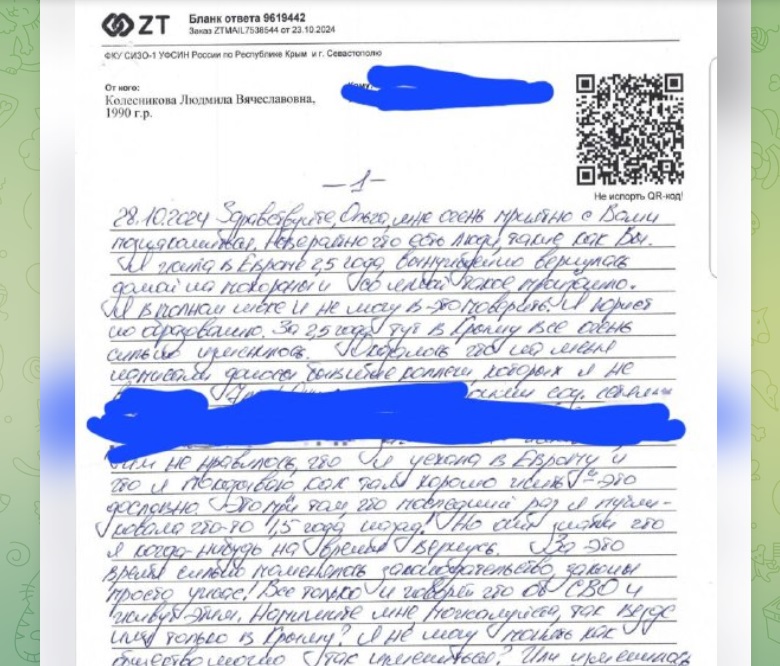 ZT
Бланк ответа 9619442
Заказ ZTMAIL7538544 от 23.10.2024
ФКУ СИЗО-1 УФСИН России по Республике Крым и г. Севастополю
От кого:
Колесникова Людмила Вячеславовна,
1990 г.р.
Не испорть QR-код!
-1-
28.10.2024 Здравствуйте, Ольга, мне очень приятно с Вами
познакомиться. Невероятно что есть люди, такие как Вы.
Я жила в Европе 2,5 года, вынужденно вернулась
домой на похороны и со мной такое произошло.
Я в полном шоке и не могу в это поверить. Я юрист
по образованию. За 2,5 года тут в Крыму все очень
сильно изменилось. Оказалось что на меня
написали доносы бывшие коллеги которых я не
соц. сетям
Им не нравилось, что я уехала в Европу и
что я показываю как там хорошо жить - это
дословно. Это при том что последний раз я публи-
ковала что-то 1,5 года назад! Но они знали что
я когда-нибудь на время вернусь. За это
время сильно поменялось законодательство, законы
просто ужас! Все только и говорят что об СВО и
живут этим. Напишите мне пожалуйста, так везде
или только в Крыму? Я не могу понять как
общество могло так измениться? Или изменилась